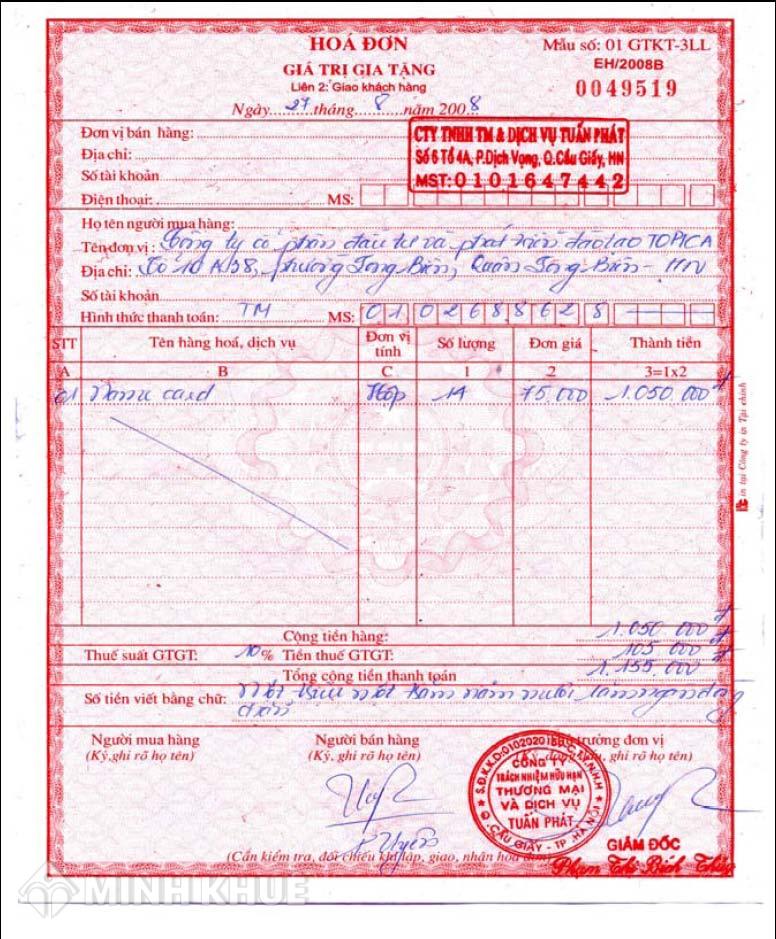 HOÁ ĐƠN
GIÁ TRỊ GIA TẶNG
Liên 2: Giao khách hàng
Ngày 27 tháng 8 năm 2008
Mẫu số: 01 GTKT-3LL
EH/2008B
0049519
Đơn vị bán hàng:
Địa chỉ:
Số tài khoản
Điện thoại: MS:
CTY TNHH TM & DỊCH VỤ TUẤN PHÁT
Số 6 Tổ 4A, P.Dịch Vọng, Q.Cầu Giấy, HN
MST: 0101647442
Họ tên người mua hàng:
Tên đơn vị: Công ty cổ phần đầu tư và phát triển đào tạo TOPICA
Địa chỉ: Tổ 10, phường Long Biên, Quận Long Biên - HN
Số tài khoản
Hình thức thanh toán: TM MS: 0102688628
STT Tên hàng hoá, dịch vụ Đơn vị tính Số lượng Đơn giá Thành tiền
A B C 1 2 3=1x2
01 Name card Hộp 14 75.000 1.050.000đ
Cộng tiền hàng: 1.050.000đ
Thuế suất GTGT: 10% Tiền thuế GTGT: 105.000đ
Tổng cộng tiền thanh toán 1.155.000đ
Số tiền viết bằng chữ: Một triệu một trăm năm mươi lăm ngàn đồng
chẵn
Người mua hàng Người bán hàng trưởng đơn vị
(Ký, ghi rõ họ tên) (Ký, ghi rõ họ tên) ghi rõ họ tên)
CÔNG TY
TRÁCH NHIỆM HỮU HẠN
THƯƠNG MẠI
VÀ DỊCH VỤ
TUẤN PHÁT
Q. CẦU GIẤY - TP. HÀ NỘI
Uyên
GIÁM ĐỐC
(Cần kiểm tra, đối chiếu khi lập, giao, nhận hoá đơn)
Phạm Thị Bích Thủy
in tại Công ty in Tài chính
MINH KHUE